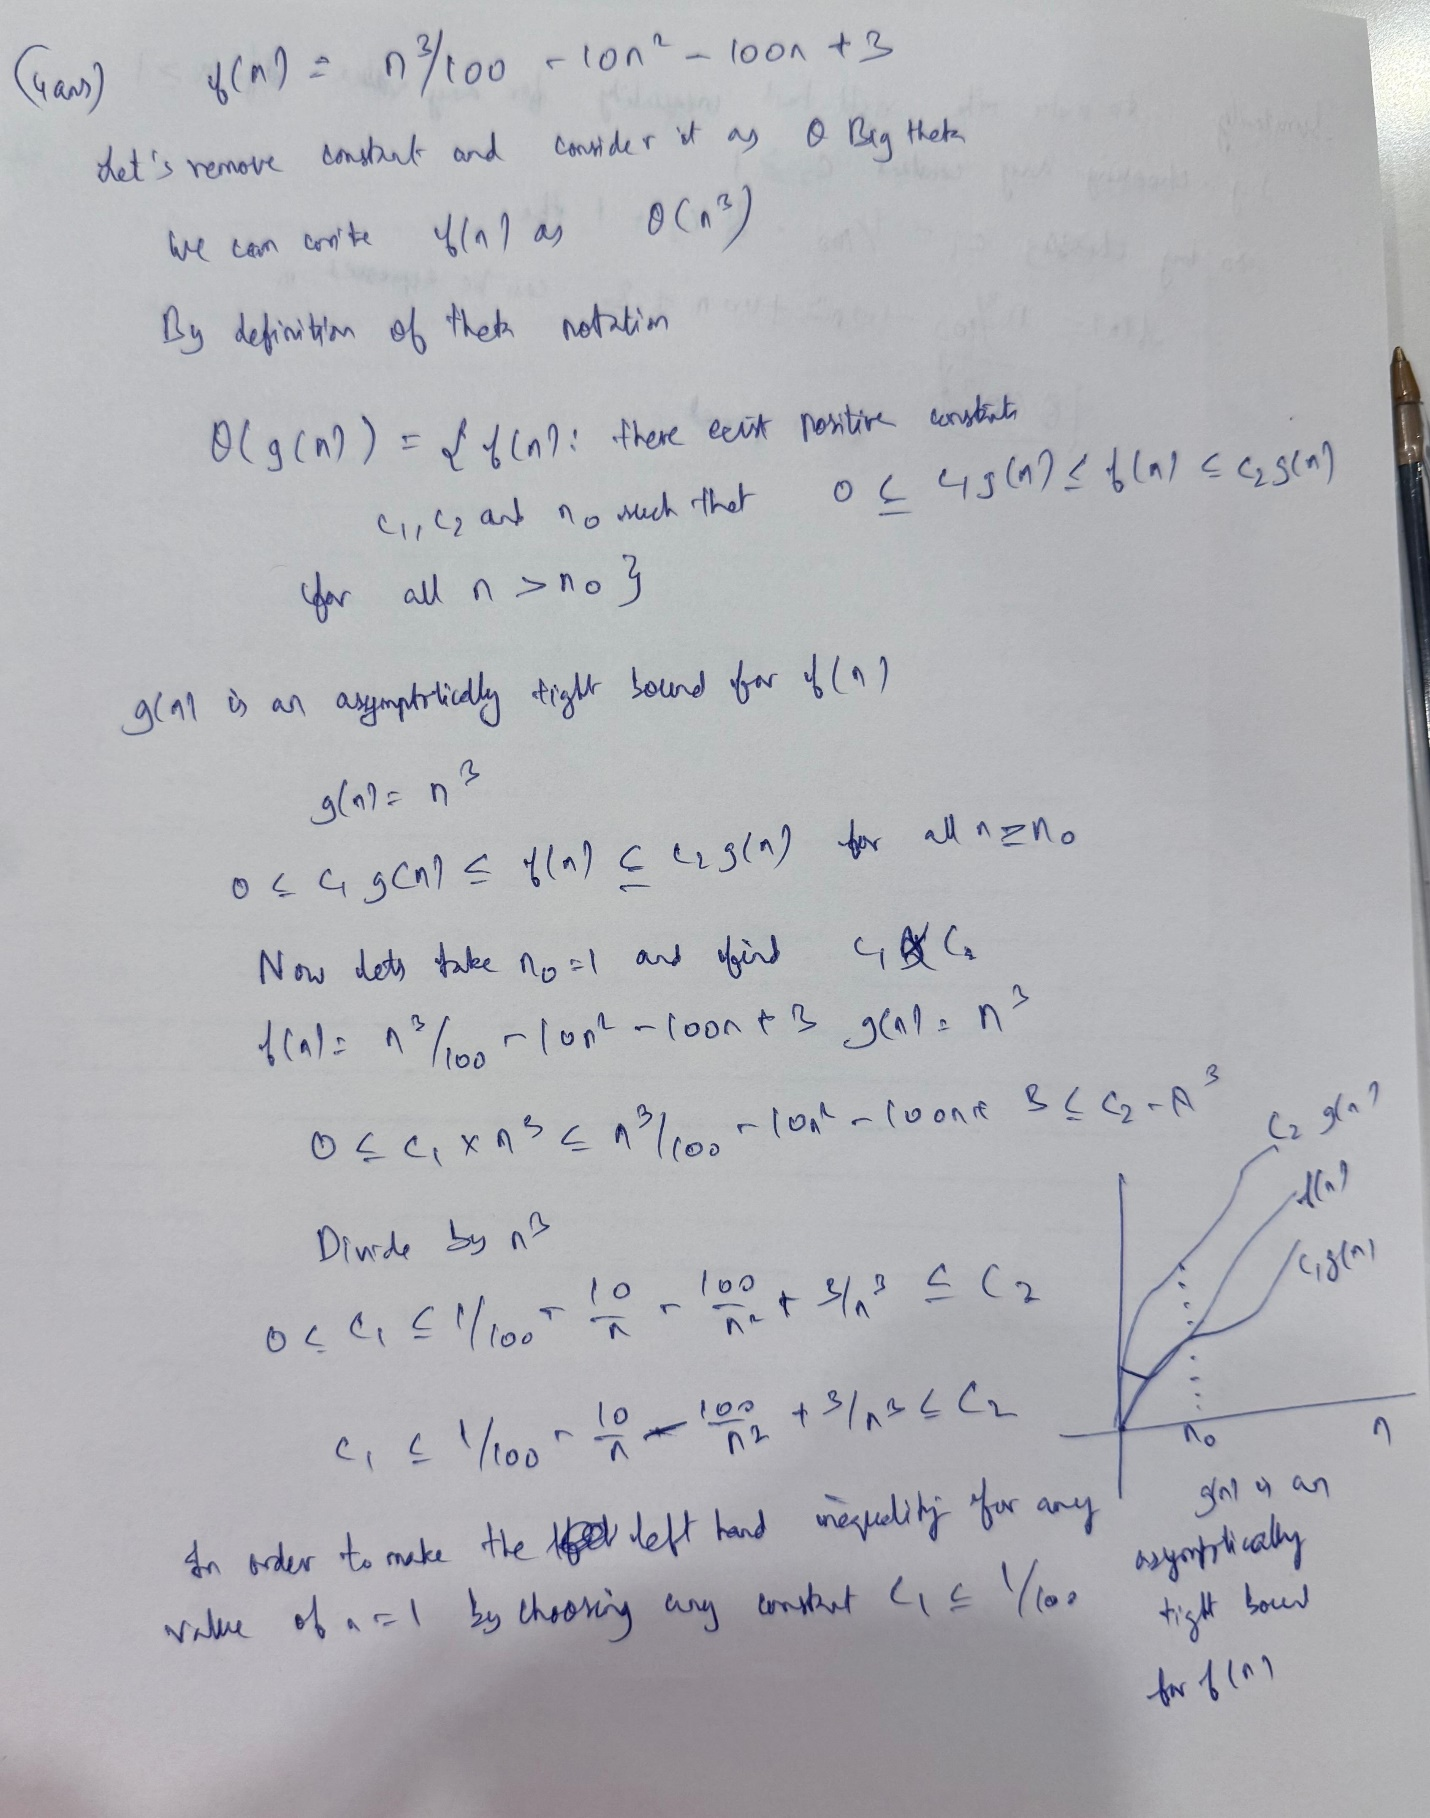 (4ans) f(n) = n³/100 - 10n² - 100n + 3
Let's remove constant and consider it as θ Big theta
We can write f(n) as θ(n³)
By definition of theta notation
θ(g(n)) = { f(n): there exist positive constants
c₁, c₂ and n₀ such that 0 ≤ c₁g(n) ≤ f(n) ≤ c₂g(n)
for all n > n₀ }
g(n) is an asymptotically tight bound for f(n)
g(n) = n³
0 ≤ c₁ g(n) ≤ f(n) ≤ c₂ g(n) for all n ≥ n₀
Now lets take n₀ = 1 and find c₁ & c₂
f(n) = n³/100 - 10n² - 100n + 3 g(n) = n³
0 ≤ c₁ × n³ ≤ n³/100 - 10n² - 100n + 3 ≤ c₂ - n³
Divide by n³
0 ≤ c₁ ≤ 1/100 - 10/n - 100/n² + 3/n³ ≤ c₂
c₁ ≤ 1/100 - 10/n - 100/n² + 3/n³ ≤ c₂
In order to make the left hand inequality for any
value of n = 1 by choosing any constant c₁ ≤ 1/100
c₂ g(n)
f(n)
c₁g(n)
n₀ n
g(n) is an
asymptotically
tight bound
for f(n)